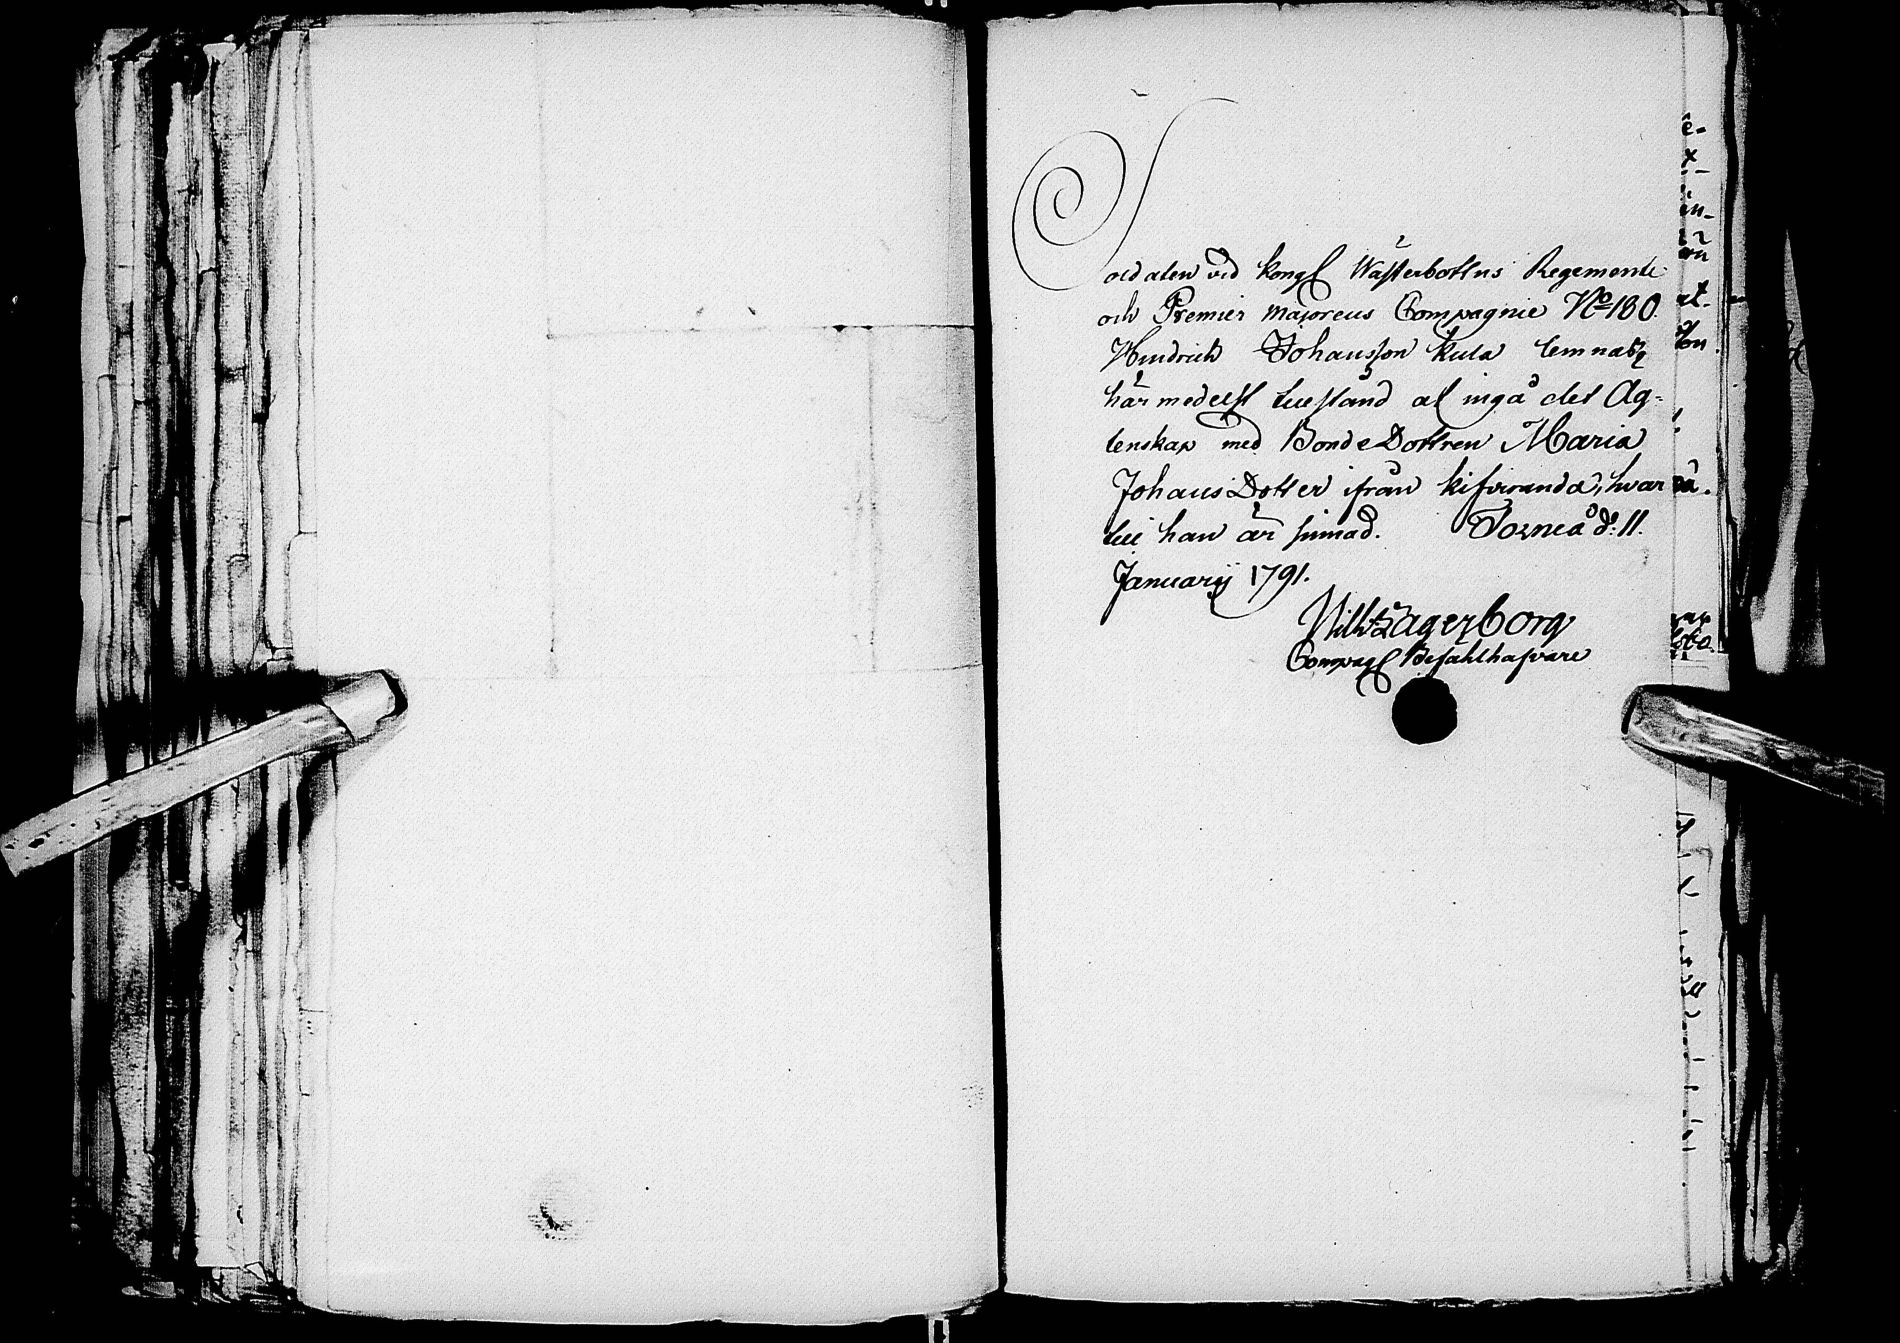 Soldaten vid Kongl Wästerbottns Regemente
och Premier Majorens Compagnie No 180.
Hindrich Johansson Kula lemnas
härmedelst tillstånd at ingå det Äg-
tenskap med BondeDottren Maria
JohansDotter ifrån Kisiranda, hvar
till han är sinnad. Torneå d: 11.
Januarij 1791.
Lagerborg
Compagl Befählhafvare